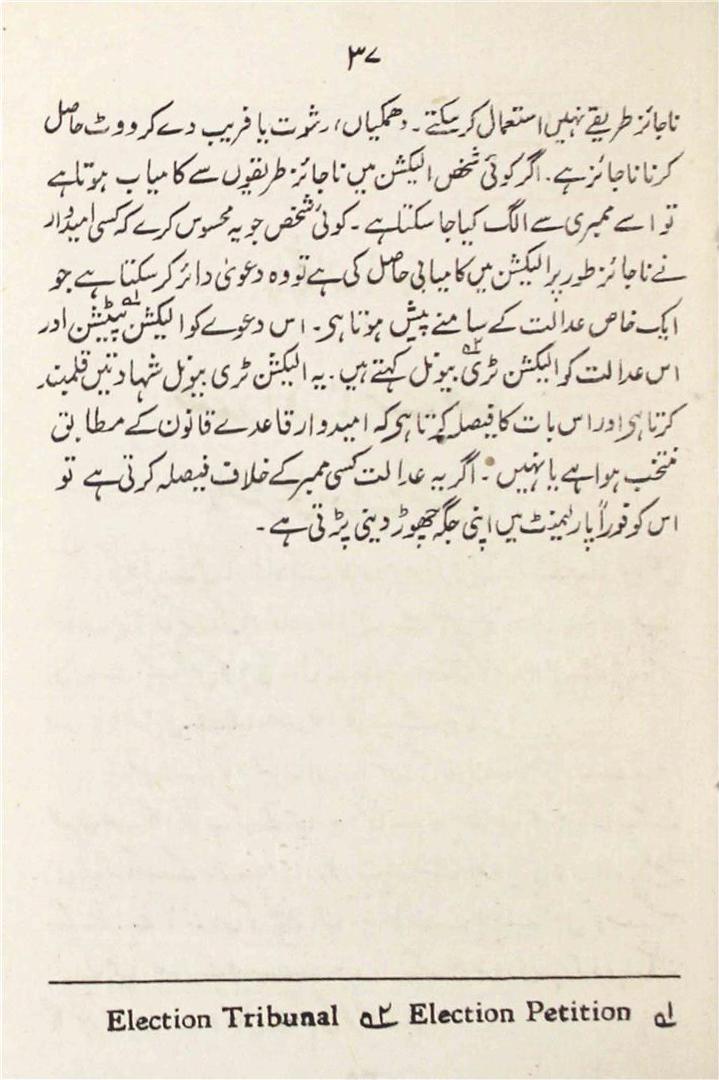 ۳۷
ناجائز طریقے نہیں استعمال کر سکتے۔ دھمکیاں، رشوت یا فریب دے کر ووٹ حاصل
کرنا ناجائز ہے۔ اگر کوئی شخص الیکشن میں ناجائز طریقوں سے کامیاب ہوتا ہے
تو اسے ممبری سے الگ کیا جا سکتا ہے۔ کوئی شخص جو یہ محسوس کرے کہ کسی امیدوار
نے ناجائز طور پر الیکشن میں کامیابی حاصل کی ہے تو وہ دعویٰ دائر کر سکتا ہے جو
ایک خاص عدالت کے سامنے پیش ہوتا ہی۔ اس دعوے کو الیکشن پٹیشن۱ اور
اس عدالت کو الیکشن ٹری۲ بیونل کہتے ہیں۔ یہ الیکشن ٹری بیونل شہادتیں قلمبند
کرتا ہی اور اس بات کا فیصلہ کرتا ہی کہ امیدوار قاعدے قانون کے مطابق
منتخب ہوا ہے یا نہیں۔ اگر یہ عدالت کسی ممبر کے خلاف فیصلہ کرتی ہے تو
اس کو فوراً پارلیمنٹ میں اپنی جگہ چھوڑ دینی پڑتی ہے۔
۱ Election Petition ۲ Election Tribunal